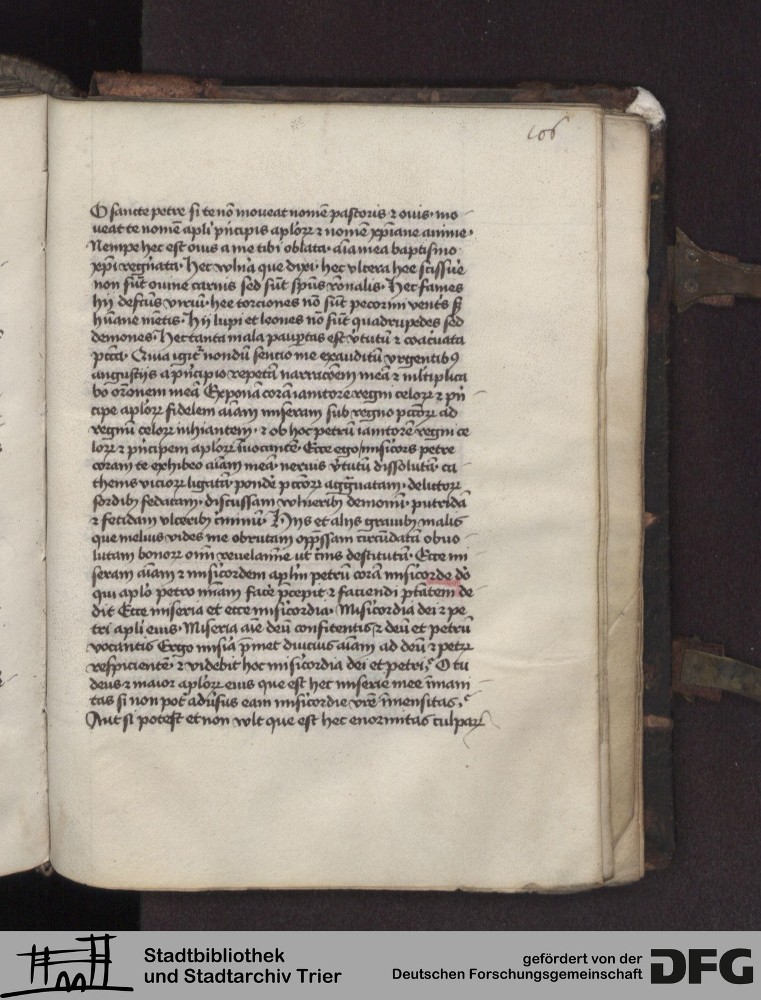 106
O sancte petre si te nō moueat nomē pastoris ⁊ ouis· mo
ueat te nomē apl'i p̄ncipis aplōꝝ ⁊ nomē xp̄iane anime·
Nempe hec est ouis a me tibi oblata· aīa mea baptismo
xp̄i regn̄ata· hec vuln̄a que dixi· hec vlcera hee scissur̄e
non sūt ouine carnis sed sūt sp̄us r̄onalis· Hec fames
hij defctūs viriū· hee torciones nō sūt pecorini vent̄s sꝫ
hūane mētis· Hij lupi et leones nō sūt quadrupedes sed
demones· Hec tanta mala paup̄tas est v̄tutū ⁊ coaceruata
pctā· Quia igit̄ nondū sencio me exauditū vrgentibꝯ
angustijs a p̄ncipio repetā narracōem meā ⁊ mltiplica
bo or̄onem meā Exponā corā ianitore regni celoꝝ ⁊ p̄n
cipe aplōꝝ fidelem aīam miseram sub regno pctōꝝ ad
regnū celoꝝ inhiantem· ⁊ ob hoc petrū ianitorē regni ce
loꝝ ⁊ p̄ncipem aplōꝝ īuocantē· Ecce ego misicors petre
coram te exhibeo aīam meā· neruis v̄tutū dissolutā· ca
thenis vicioꝝ ligatā· pondē pctōꝝ agg̃uatam· delictoꝝ
sordibꝫ fedatam· discussam vulneribꝫ demonū· putridā
⁊ fetidam vlceribꝫ c̄minū· Hijs et alijs grauibꝫ malis
que melius vides me obrutam opp̄ssam circūdatā obuo
lutam bonoꝝ om̄i reuelamīe vt c̄nis destitutā· Ecce mi
seram aīam ⁊ misicordem aplm̄ petrū corā misicorde dō
qui aplō petro m̄iam fac̄e p̄cepit ⁊ faciendi p̄tātem de
dit Ecce miseria et ecce misicordia· Misicordia dei ⁊ pe
tri apl'i eius· Miseria aīe deū confitentis ⁊ deū et petrū
vocantis Ergo misīa p̄met diucius aīam ad deū ⁊ petrū
respicientē ⁊ videbit hoc misicordia dei et petri· O tu
deus ⁊ maior aplōꝝ eius que est hec miserie mee īmani
tas si non pot̄ adūsus eam misicordie vr̄e īmensitas·
Aut si potest et non vult que est hec enormitas culpaꝝ
Stadtbibliothek
und Stadtarchiv Trier
gefördert von der
Deutschen Forschungsgemeinschaft
DFG